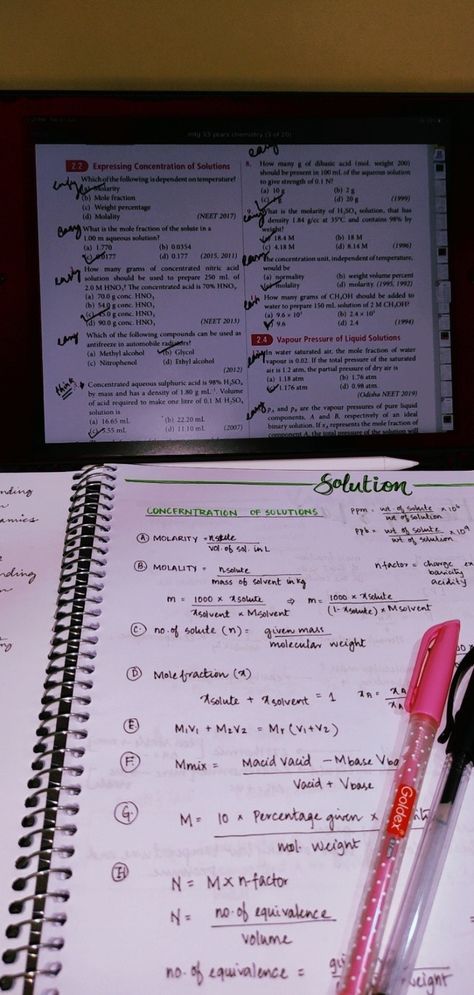 mtg 33 years chemistry (3 of 20)
2.2 Expressing Concentration of Solutions
Which of the following is dependent on temperature?
(a) Molarity
(b) Mole fraction
(c) Weight percentage
(d) Molality (NEET 2017)
easy
What is the mole fraction of the solute in a
1.00 m aqueous solution?
(a) 1.770 (b) 0.0354
(c) 0.0177 (d) 0.177 (2015, 2011)
How many grams of concentrated nitric acid
solution should be used to prepare 250 mL of
2.0 M HNO3? The concentrated acid is 70% HNO3.
(a) 70.0 g conc. HNO3
(b) 54.0 g conc. HNO3
(c) 45.0 g conc. HNO3
(d) 90.0 g conc. HNO3 (NEET 2013)
easy
Which of the following compounds can be used as
antifreeze in automobile radiators?
(a) Methyl alcohol (b) Glycol
(c) Nitrophenol (d) Ethyl alcohol
(2012)
think
Concentrated aqueous sulphuric acid is 98% H2SO4
by mass and has a density of 1.80 g mL-1. Volume
of acid required to make one litre of 0.1 M H2SO4
solution is
(a) 16.65 mL (b) 22.20 mL
(c) 5.55 mL (d) 11.10 mL (2007)
easy
8. How many g of dibasic acid (mol. weight 200)
should be present in 100 mL of the aqueous solution
to give strength of 0.1 N?
(a) 10 g (b) 2 g
(d) 20 g (1999)
easy
What is the molarity of H2SO4 solution, that has
density 1.84 g/cc at 35°C and contains 98% by
weight?
(a) 18.4 M (b) 18 M
(c) 4.18 M (d) 8.14 M (1996)
easy
The concentration unit, independent of temperature,
would be
(a) normality (b) weight volume percent
(c) molality (d) molarity (1995, 1992)
How many grams of CH3OH should be added to
water to prepare 150 mL solution of 2 M CH3OH?
(a) 9.6 × 10³ (b) 2.4 × 10³
(c) 9.6 (d) 2.4 (1994)
2.4 Vapour Pressure of Liquid Solutions
In water saturated air, the mole fraction of water
vapour is 0.02. If the total pressure of the saturated
air is 1.2 atm, the partial pressure of dry air is
(a) 1.18 atm (b) 1.76 atm
(c) 1.176 atm (d) 0.98 atm.
(Odisha NEET 2019)
easy
and are the vapour pressures of pure liquid
components, A and B, respectively of an ideal
binary solution. If represents the mole fraction of
component A, the total pressure of the solution will
Solution
CONCERNTRATION OF SOLUTIONS
ppm = wt. of solute × 10⁶
wt of solution
ppb = wt of solute × 10⁹
wt of solution
(A) MOLARITY = nsolute
vol. of sol. in L
(B) MOLALITY = nsolute
mass of solvent in kg
nfactor = charge
basicity
acidity
m = 1000 × xsolute ⇒ m = 1000 × xsolute
xsolvent × Msolvent (1-xsolute) × Msolvent
(C) no. of solute (n) = given mass
molecular weight
(D) Mole fraction (x)
xsolute + xsolvent = 1 xA =
(E) M1V1 + M2V2 = Mr (V1+V2)
(F) Mmix = Macid Vacid - Mbase
Vacid + Vbase
(G) M = 10 × Percentage given ×
mol. weight
(H) N = M × n-factor
N = no. of equivalence
volume
no. of equivalence =
weight
Goldex